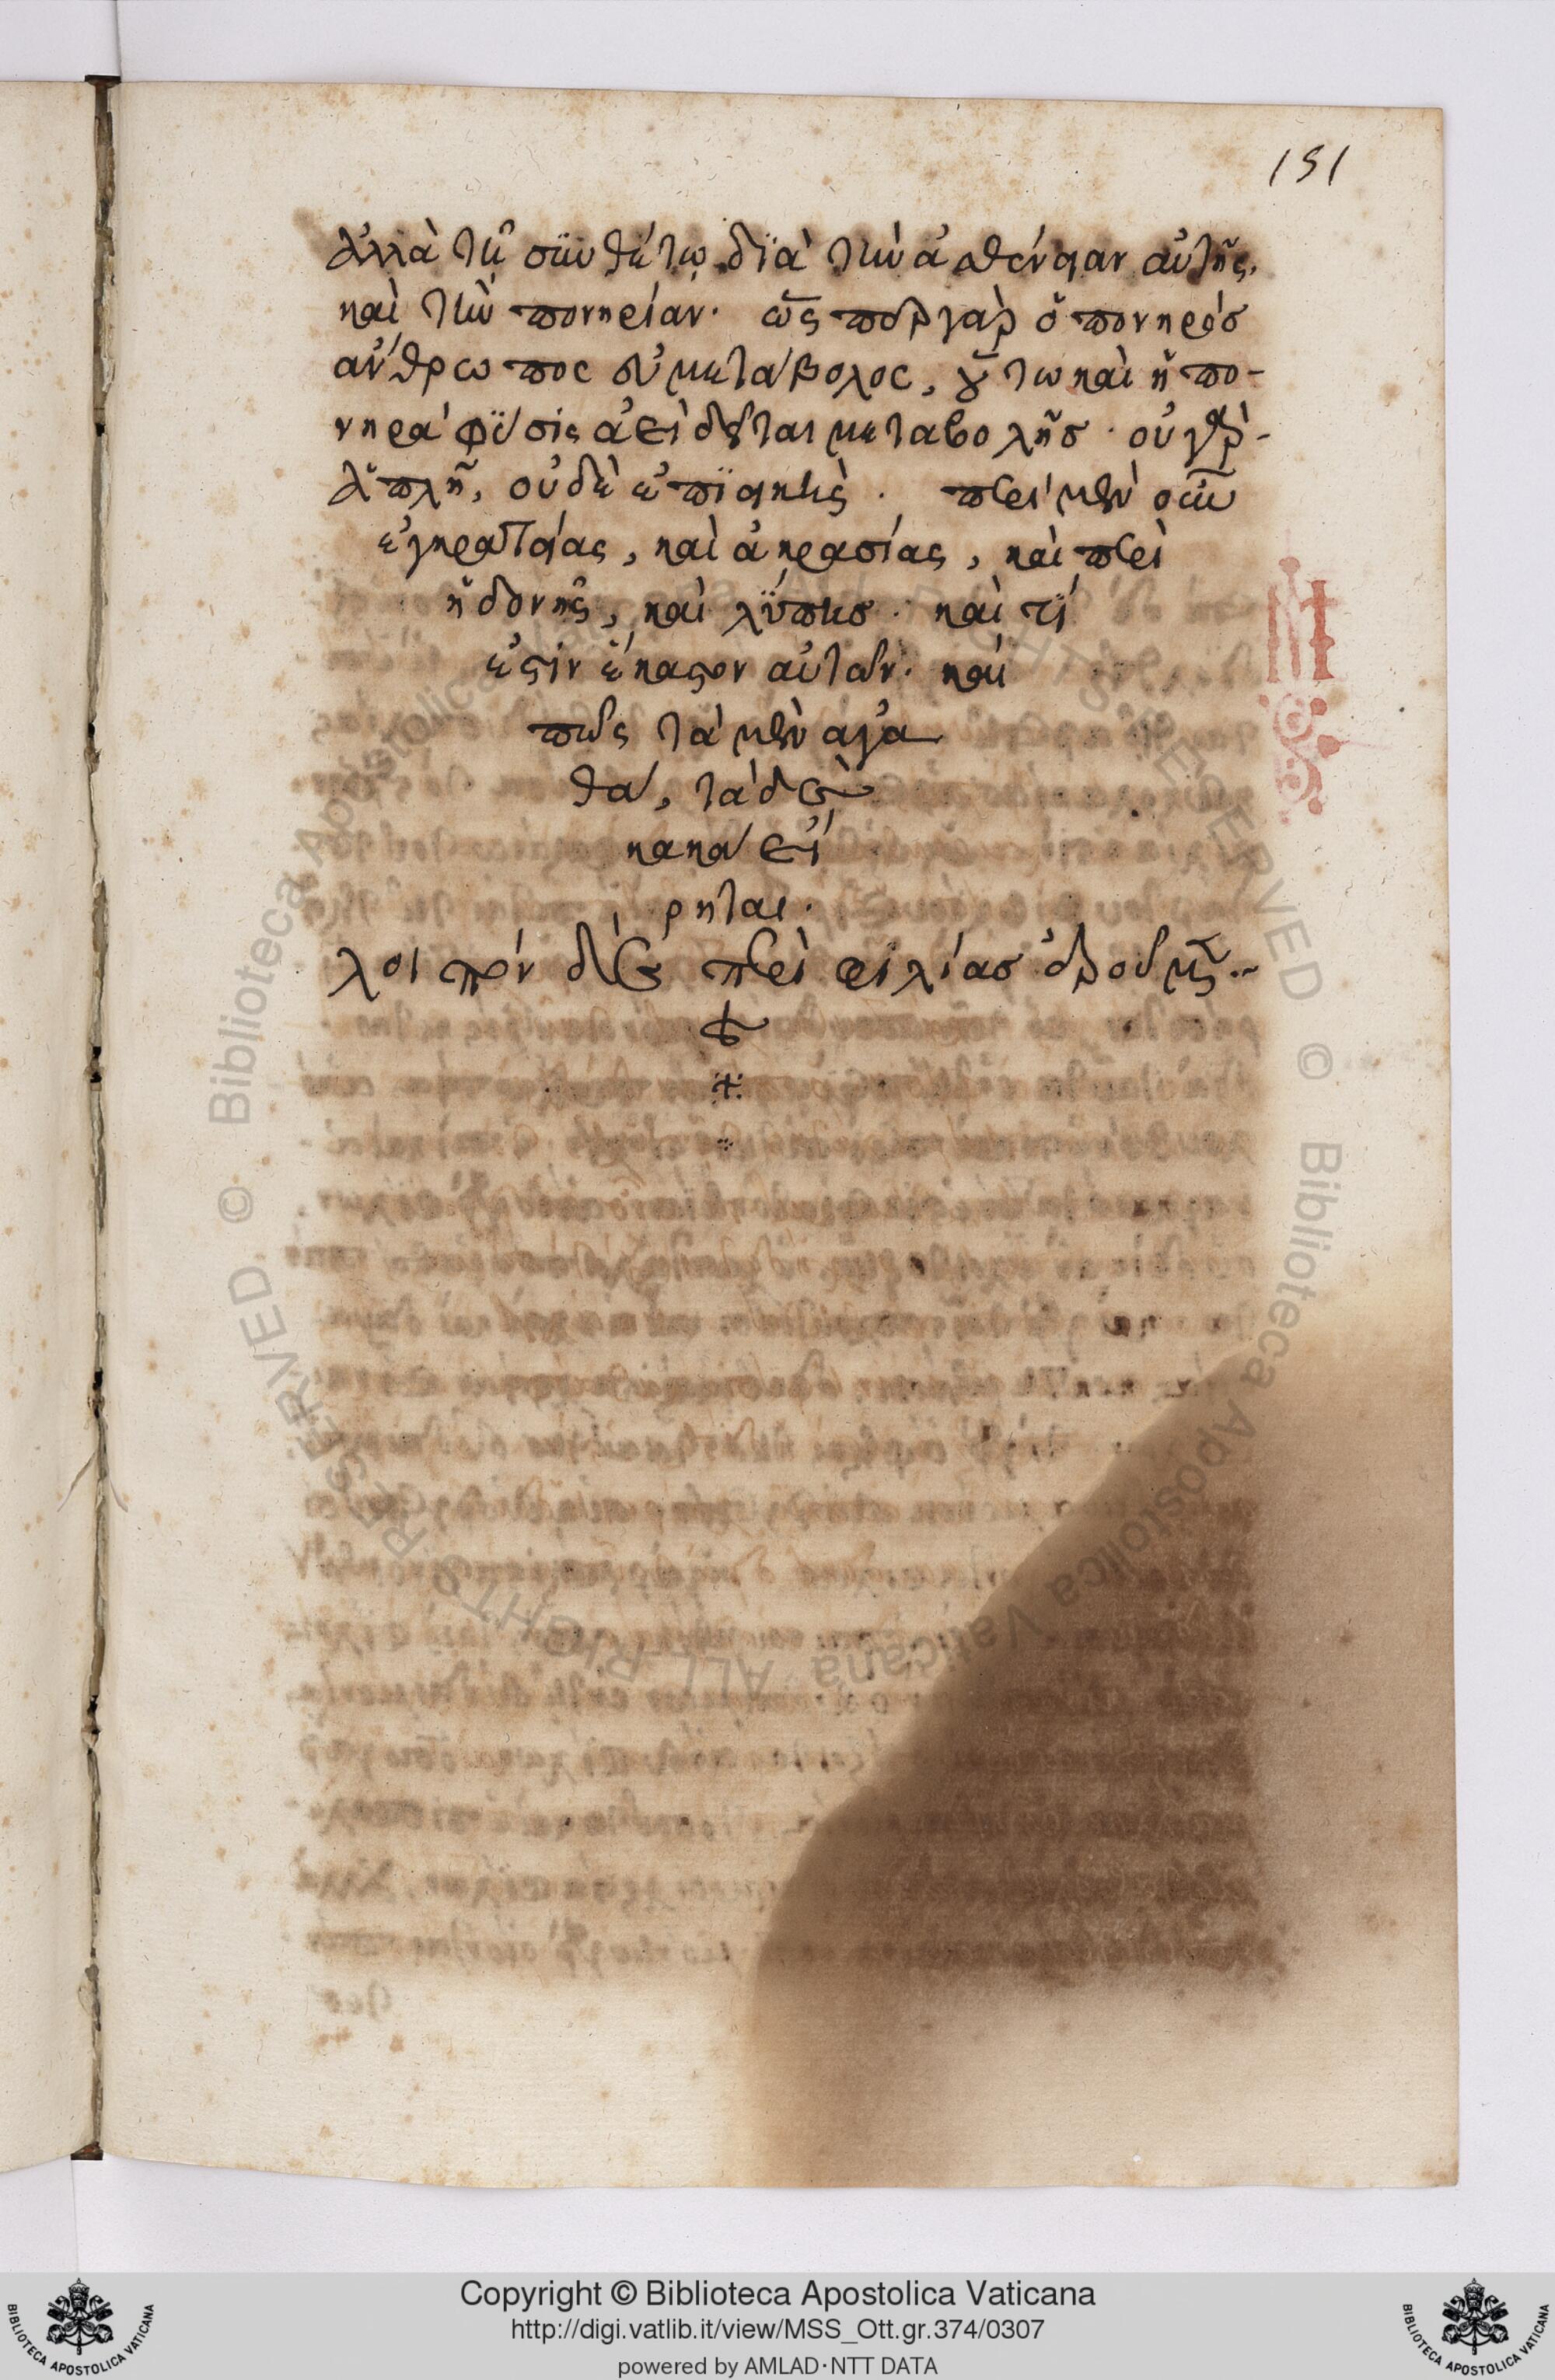 151
ἀλλὰ τῆ συνθέτω διὰ τὴν ἀσθένειαν αὐτῆς,
καὶ τὴν πονηρίαν. ὥσπερ γὰρ ὁ πονηρὸσ
ἄνθρωπος εὐμετάβολος, οὕτω καὶ ἡ πο-
νηρὰ φύσις ἀεὶ δεῖται μεταβολῆσ. οὐ γὰρ
ἁπλῆ, οὐδὲ ἐπιεικὴς. περὶ μὲν οὖν
ἐγκρατείας, καὶ ἀκρασίας, καὶ περὶ
ἡδονῆς, καὶ λύπησ. καὶ τί
ἐστιν ἕκαστον αὐτῶν. καὶ
πῶς τὰ μὲν ἀγα
θὰ, τὰ δὲ
κακὰ εἴ
ρηται.
λοιπὸν δὲ καὶ περὶ φιλίασ ἐροῦμεν
Biblioteca Apostolica Vaticana ALL RIGHTS RESERVED ©
Copyright © Biblioteca Apostolica Vaticana
http://digi.vatlib.it/view/MSS_Ott.gr.374/0307
powered by AMLAD·NTT DATA
BIBLIOTECA APOSTOLICA VATICANA
BIBLIOTECA APOSTOLICA VATICANA